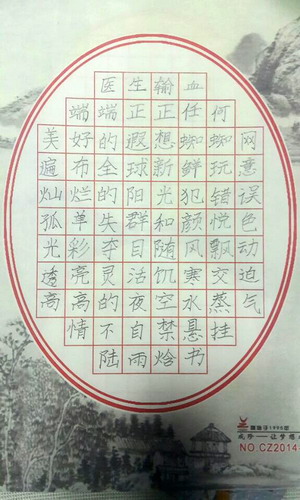 医生输血
端端正正任何
美好的遐想蜘蜘网
遍布全球新鲜玩意
灿烂的阳光犯错误
孤单失群和颜悦色
光彩夺目随风飘动
透亮灵活饥寒交迫
高高的夜空水蒸气
情不自禁悬挂
陆雨焓书
NO.CZ2014